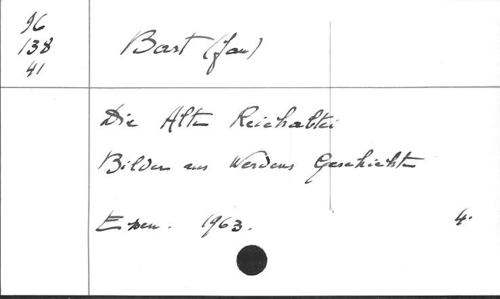 96
138
41
Bart (Jan)
Die Alte Reichabtei
Bilder aus Werdens Geschichte
Essen. 1963.
4.